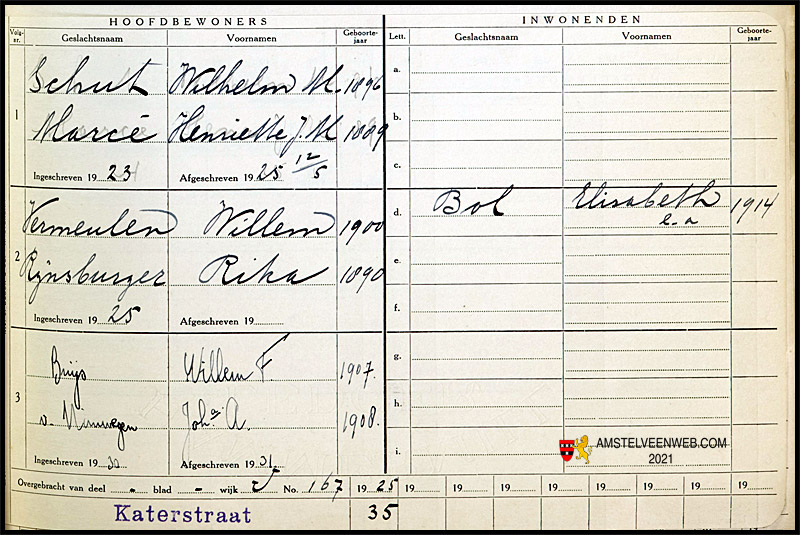 HOOFDBEWONERS INWONENDEN
Volg-nr. Geslachtsnaam Voornamen Geboorte-jaar Lett. Geslachtsnaam Voornamen Geboorte-jaar
1 Schut Wilhelm M. 1896 a.
Marcé Henriette J. M 1889 b.
c.
Ingeschreven 19 23 Afgeschreven 19 25 12/5
2 Vermeulen Willem 1900 d. Bol Elisabeth 1914
e.a
Rijnsburger Rika 1890 e.
f.
Ingeschreven 19 25 Afgeschreven 19
3 Buijs Willem F. 1907. g.
v. Nimwegen Joha. A. 1908. h.
i.
Ingeschreven 19 30 Afgeschreven 19 31.
AMSTELVEENWEB.COM
2021
Overgebracht van deel " blad - wijk No. 167 19 25 19 19 19 19 19 19 19 19
Katerstraat 35